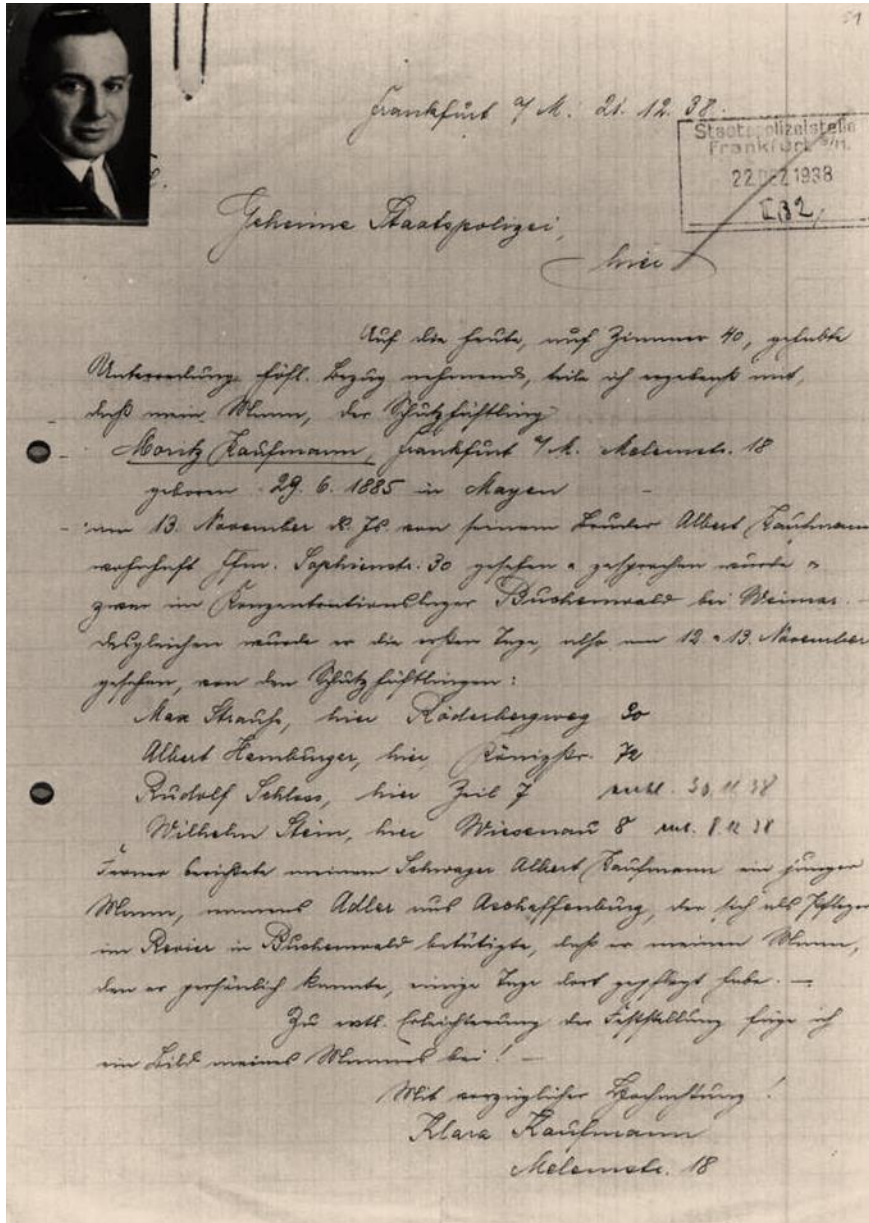 51
Frankfurt a/M. 21. 12. 38.
Staatspolizeistelle
Frankfurt a/M.
22 DEZ 1938
II B 2
Geheime Staatspolizei,
hier
Auf die heute, auf Zimmer 40, gehabte
Unterredung höfl. Bezug nehmend, teile ich ergebenst mit,
daß mein Mann, der Schutzhäftling
Moritz Kaufmann, Frankfurt a/M. Melemstr. 18
geboren 29. 6. 1885 in Mayen
am 13. November ds. Js. von seinem Bruder Albert Kaufmann
wohnhaft Ffm. Sophienstr. 30 gesehen u gesprochen wurde u
zwar im Konzentrationslager Buchenwald bei Weimar. –
Desgleichen wurde er die ersten Tage, also am 12 u 13. November
gesehen, von den Schutzhäftlingen:
Max Strauss, hier Röderbergweg 30
Albert Hamburger, hier, Königstr. 72
Rudolf Schloss, hier Zeil 7 entl. 30.11.38
Wilhelm Stein, hier Wiesenau 8 entl. 8.12.38
Ferner berichtete meinem Schwager Albert Kaufmann ein junger
Mann, namens Adler aus Aschaffenburg, der sich als Pfleger
im Revier in Buchenwald betätigte, daß er meinen Mann,
den er persönlich kannte, einige Tage dort gepflegt habe. –
Zu evtl. Erleichterung der Feststellung füge ich
ein Bild meines Mannes bei! –
Mit vorzüglicher Hochachtung!
Klara Kaufmann
Melemstr. 18